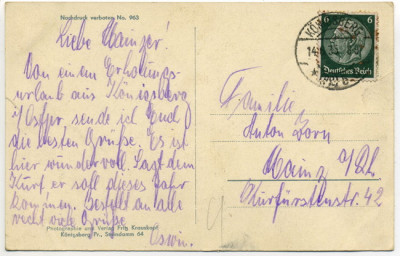 Nachdruck verboten No. 963
Liebe Mainzer!
Von einem Erholungs-
urlaub aus Königsberg
i/Ostpr. sende ich Euch
die besten Grüße. Es ist
hier wundervoll. Sagt dem
er soll dieses Jahr
kommen. Bestellt an alle
recht viele Grüße
Oswin.
Photographie und Verlag Fritz Krauskopf
Königsberg Pr., Steindamm 64
6 6
Deutsches Reich
Familie
Anton Dorn
Mainz a/Rh
Kurfürstenstr. 42